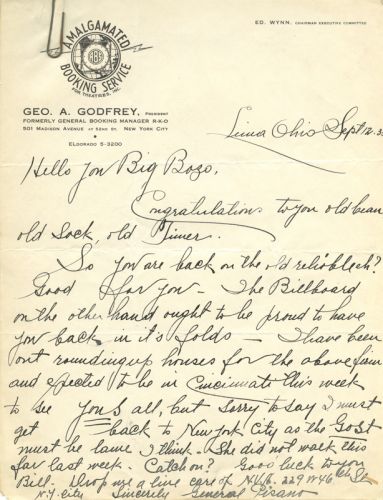 ED. WYNN, CHAIRMAN EXECUTIVE COMMITTEE
AMALGAMATED
BOOKING SERVICE
FOR THEATRES, INC.
GEO. A. GODFREY, PRESIDENT
FORMERLY GENERAL BOOKING MANAGER R-K-O
501 MADISON AVENUE AT 52ND ST. NEW YORK CITY
ELDORADO 5-3200
Lima Ohio Sept 12.
Hello You Big Bozo.
Congratulations to you old bean
old Sock, old Timer.
So you are back on the old reliable eh?
Good for you - The Billboard
on the other hand ought to be proud to have
you back in it's folds - I have been
out rounding up houses for the above firm
and expected to be in Cincinnati this week
to see you all, but sorry to say I must
get back to New York City as the Gost
must be lame I think. She did not walk this
far last week. Catch on? Good luck to you
Bill. Drop me a line care of N.V.A. 229 W 46
N.Y. City Sincerely General Pisano